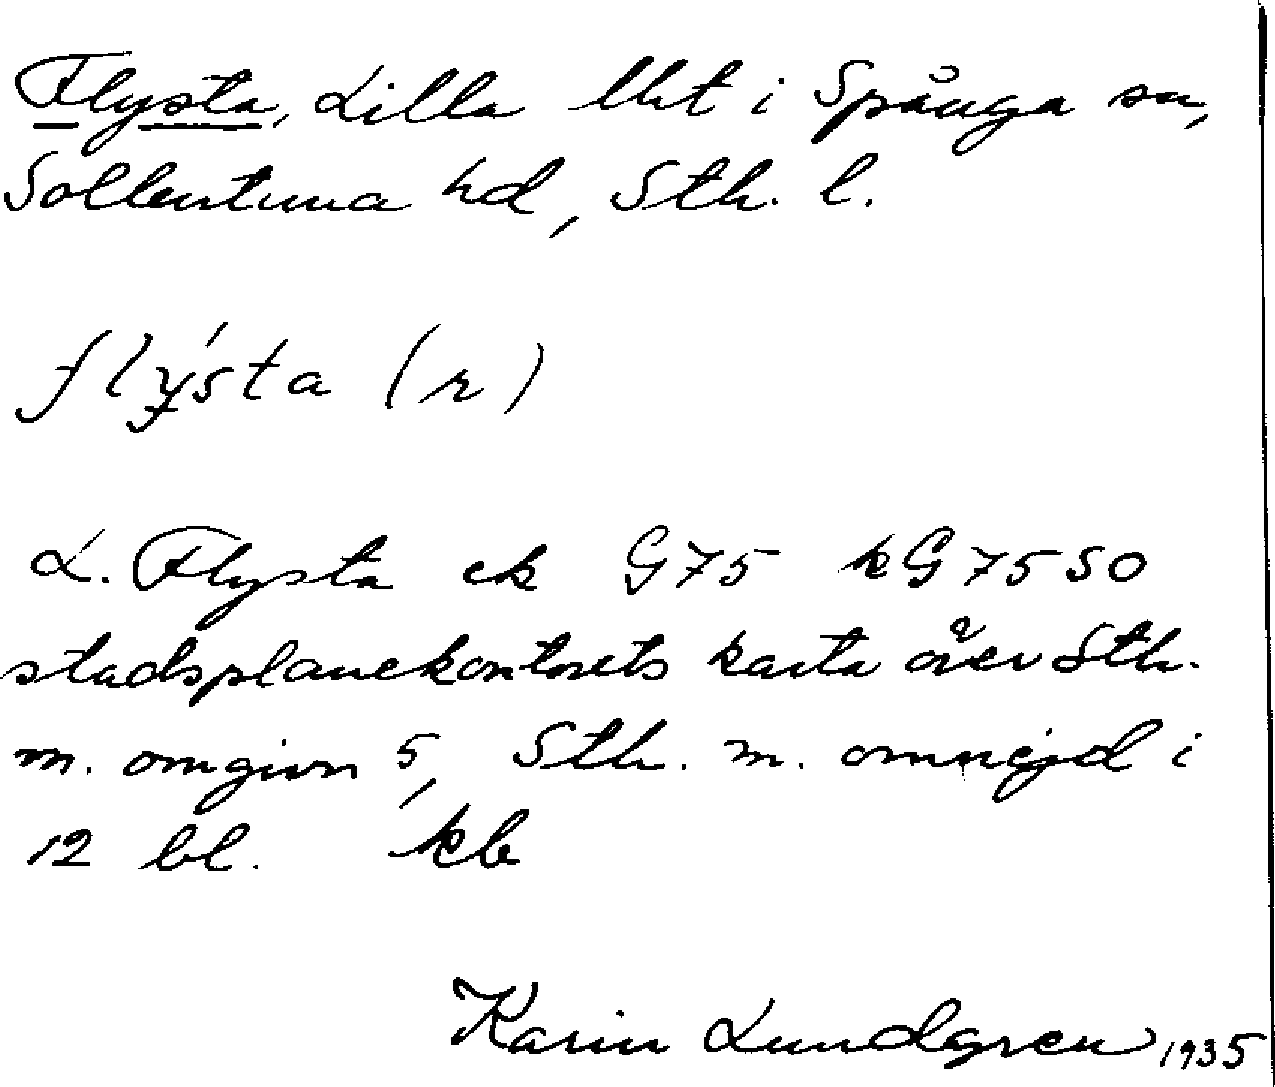 Flysta, Lilla lht i Spånga sn,
Sollentuna hd, Sth. l.
flýsta (r)
L. Flysta ek G75 kG7550
stadsplanekontorets karta över Sth.
m. omgivn 5, Sth. m. omnejd i
12 bl. kb
Karin Lundgren 1935